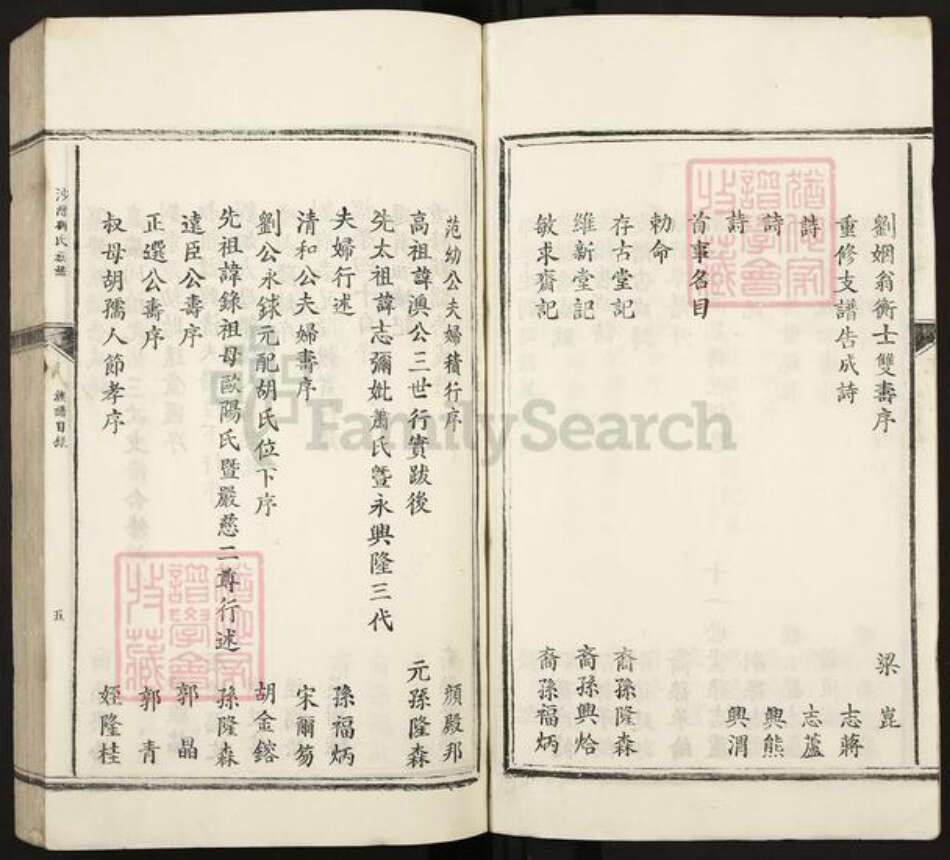 劉姻翁衡士雙壽序 梁崑
重修支譜告成詩 志蔣
詩 志蘆
詩 興熊
詩 興渭
首事名目
勅命
存古堂記 裔孫隆森
維新堂記 裔孫興烚
敏求齋記 裔孫福炳
范幼公夫婦積行序 顏殿邦
高祖諱漁公三世行實跋後 元孫隆森
先太祖諱志彌妣蕭氏曁永興隆三代
夫婦行述 孫福炳
清和公夫婦壽序 宋爾笏
劉公永銶元配胡氏位下序 胡金鎔
先祖諱錄祖母歐陽氏暨嚴慈二尊行述 孫隆森
遠臣公壽序 郭晶
正選公壽序 郭青
叔母胡孺人節孝序 姪隆桂
劉氏族譜
族譜目錄
五
譜學會
收藏
FamilySearch